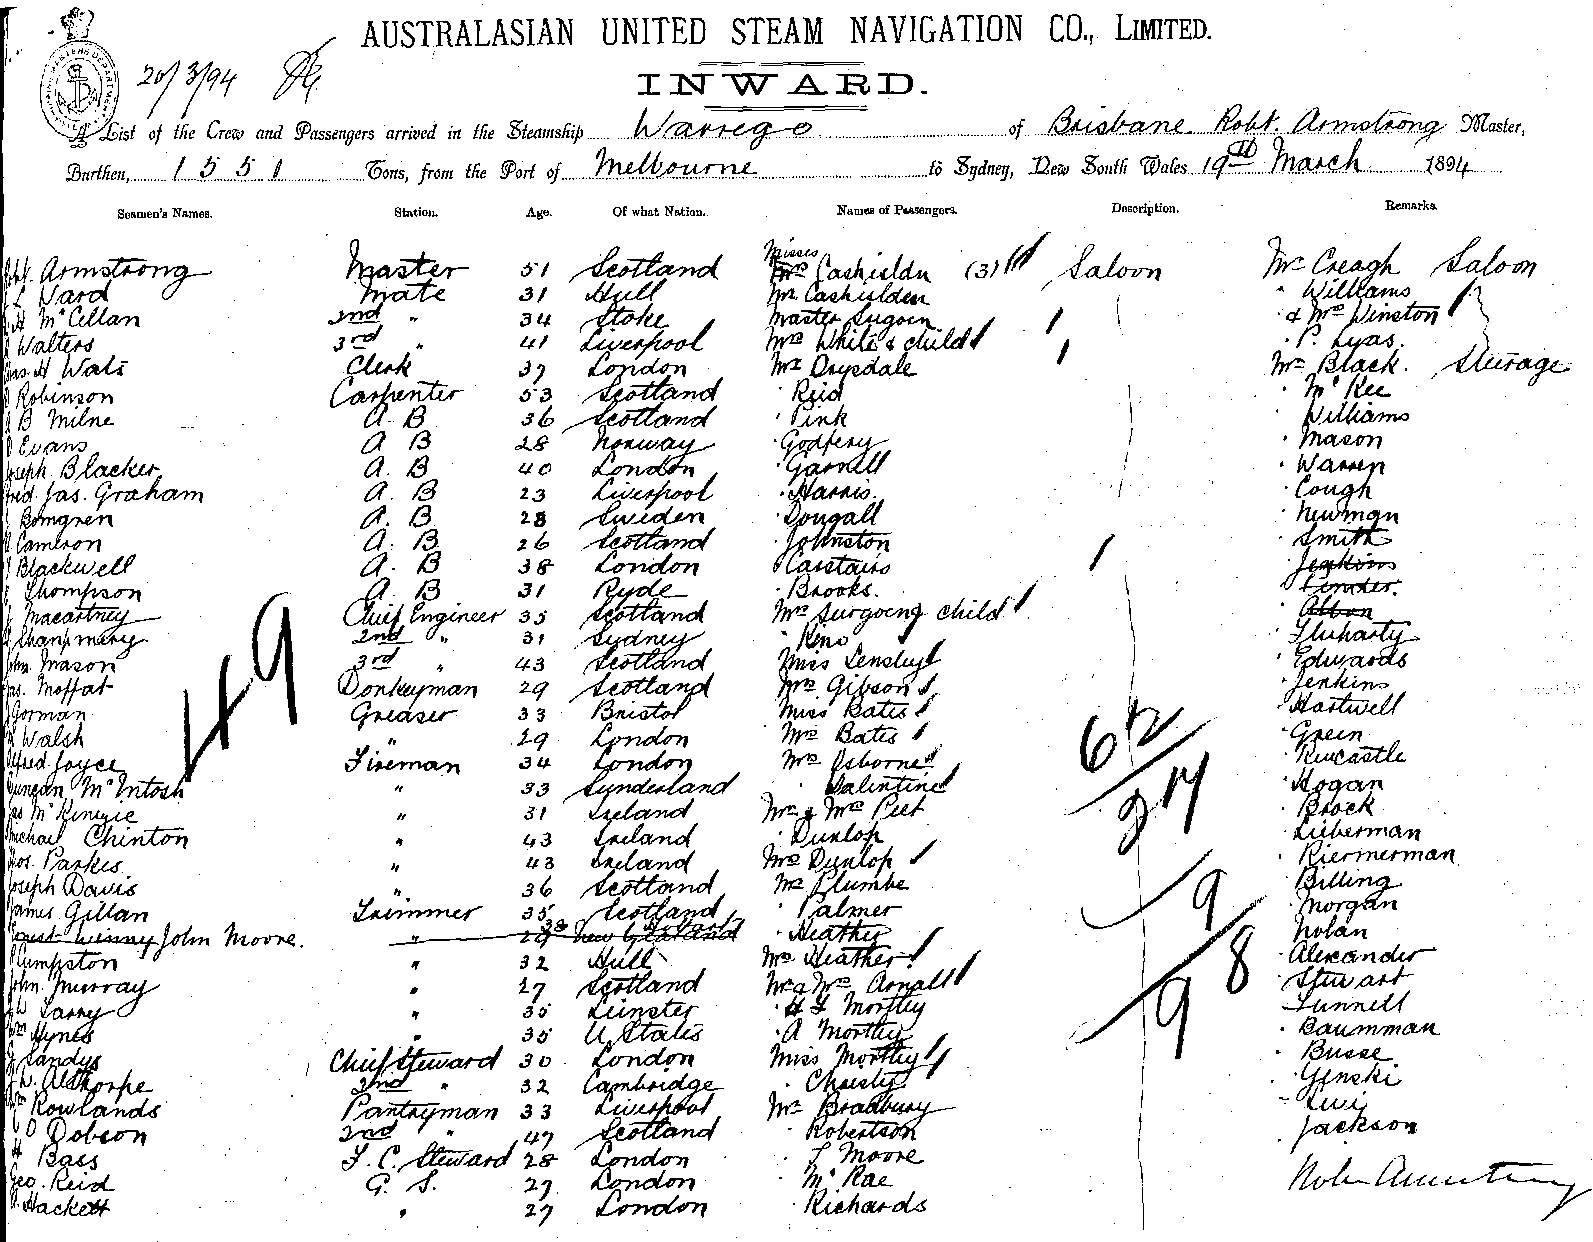 AUSTRALASIAN UNITED STEAM NAVIGATION CO., LIMITED.
20/3/94
INWARD.
A List of the Crew and Passengers arrived in the Steamship Warrego of Brisbane Robt. Armstrong Master,
Burthen, 1551 Tons, from the Port of Melbourne to Sydney, New South Wales 19th March 1894
Seamen's Names. Station. Age. Of what Nation. Names of Passengers. Description. Remarks.
Misses
Armstrong Master 51 Scotland (3) Saloon Mr Creagh Saloon
Ward Mate 31 Hull Mr Williams
McCellan 2nd " 34 Stoke Master & Mrs Winston
Walters 3rd " 41 Liverpool Mrs White & child P. Lyas.
Jas. H Wats Clerk 37 London Mr Drysdale Mr Black. Steerage
Robinson Carpenter 53 Scotland " Reid " McKee
B Milne A. B 36 Scotland " Pink " Williams
Evans A B 28 Norway " Godfery " Mason
Joseph Blacker A. B 40 London " Garnell " Warren
Fred. Jas. Graham A. B 23 Liverpool " Harris. " Cough
Bomgren A. B 28 Sweden " Dougall " Newman
Cameron A. B 26 Scotland " Johnston " Smith
Blackwell A. B 38 London " Carstairs " Jenkins
Thompson A. B 31 Ryde " Brooks.
Macartney Chief Engineer 35 Scotland Mrs child
2nd " 31 Sydney " King " Fluharty
John Mason 3rd " 43 Scotland Miss " Edwards
Jas. Moffat Donkeyman 29 Scotland Mrs Gibson " Jenkins
Gorman Greaser 33 Bristol Miss Bates " Hartwell
Walsh " 29 London Mrs Bates " Green
Alfred Joyce Fireman 34 London Mrs Osborne " Runcastle
Duncan McIntosh " 33 Sunderland " Valentine " Hogan
Jas McKenzie " 31 Ireland Mr & Mrs Peet " Brock
Michael Chinton " 43 Ireland " Dunlop " Lieberman
Jos. Parkes. " 43 Ireland Mrs Dunlop " Riermerman
Joseph Davis " 36 Scotland Mr Plumbe " Billing
James Gillan Trimmer 35 Scotland " Palmer " Morgan
John Moore. " 29 New Zealand " Heather " Nolan
Plumpston " 32 Hull Mrs Heather " Alexander
John Murray " 27 Scotland Mr & Mrs Arnall " Stewart
Larry " 35 Leinster " H F Mortley " Funnell
Wm Hynes " 35 U. States " A Mortley " Baumman
Landys Chief Steward 30 London Miss Mortley " Busse
Althorpe 2nd " 32 Cambridge " Christy " Genski
Rowlands Pantryman 33 Liverpool Mr Bradbury " Levi
Dobson 2nd " 47 Scotland " Robertson " Jackson
H Bass F. C. Steward 28 London " F Moore
Geo. Reid G. S. 27 London " McRae Robt Armstrong
Hackett " 27 London " Richards
49
62
214
9
8
9